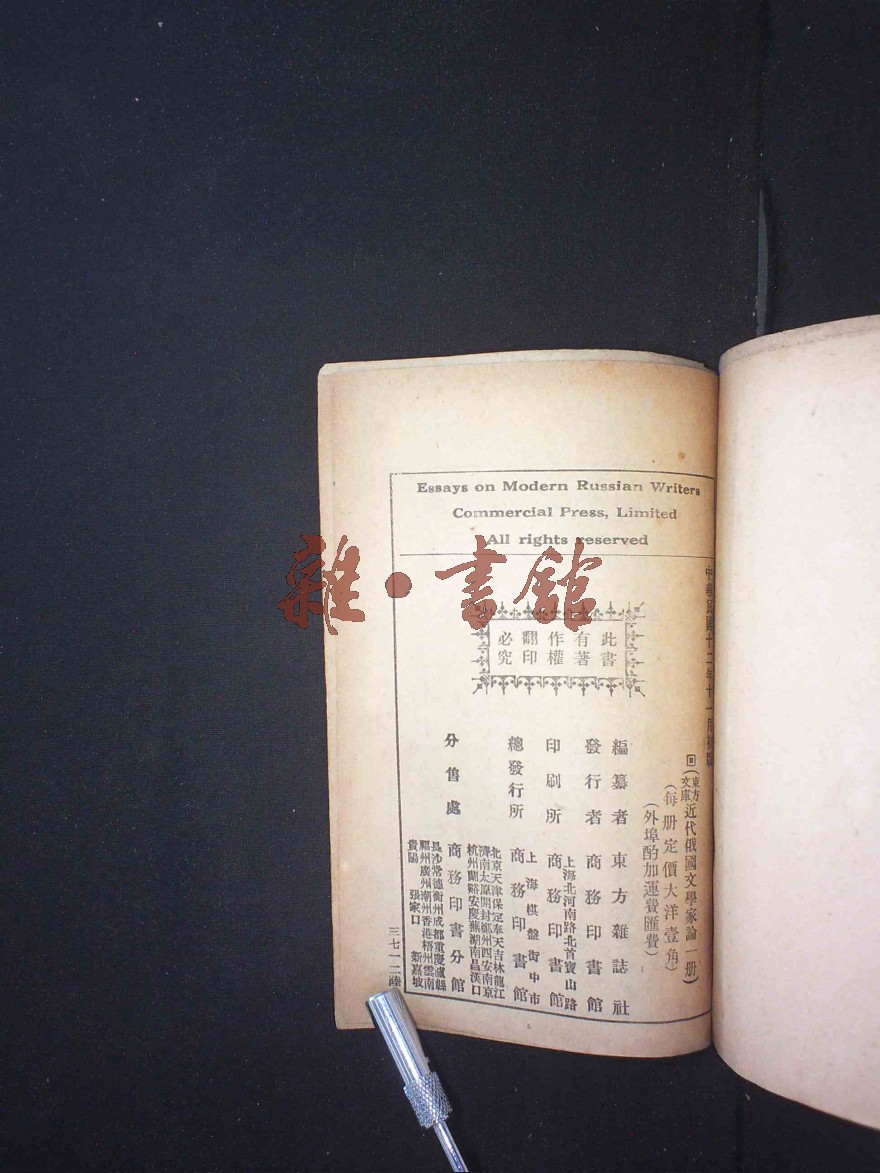 Essays on Modern Russian Writers
Commercial Press, Limited
All rights reserved
雜·書館
此書
有著
作權
翻印
必究
中華民國十二年十一月初版
東方文庫
近代俄國文學家論一册
(每册定價大洋壹角)
(外埠酌加運費匯費)
編纂者 東方雜誌社
發行者 商務印書館
上海北河南路北首寶山路
印刷所 商務印書館
上海棋盤街中市
總發行所 商務印書館
北京天津保定奉天吉林龍江
濟南太原開封鄭州西安南京
杭州蘭谿安慶蕪湖南昌漢口
分售處 商務印書分館
長沙常德衡州成都重慶瀘縣
福州廣州潮州香港梧州雲南
貴陽 張家口 新嘉坡
三七一二陸